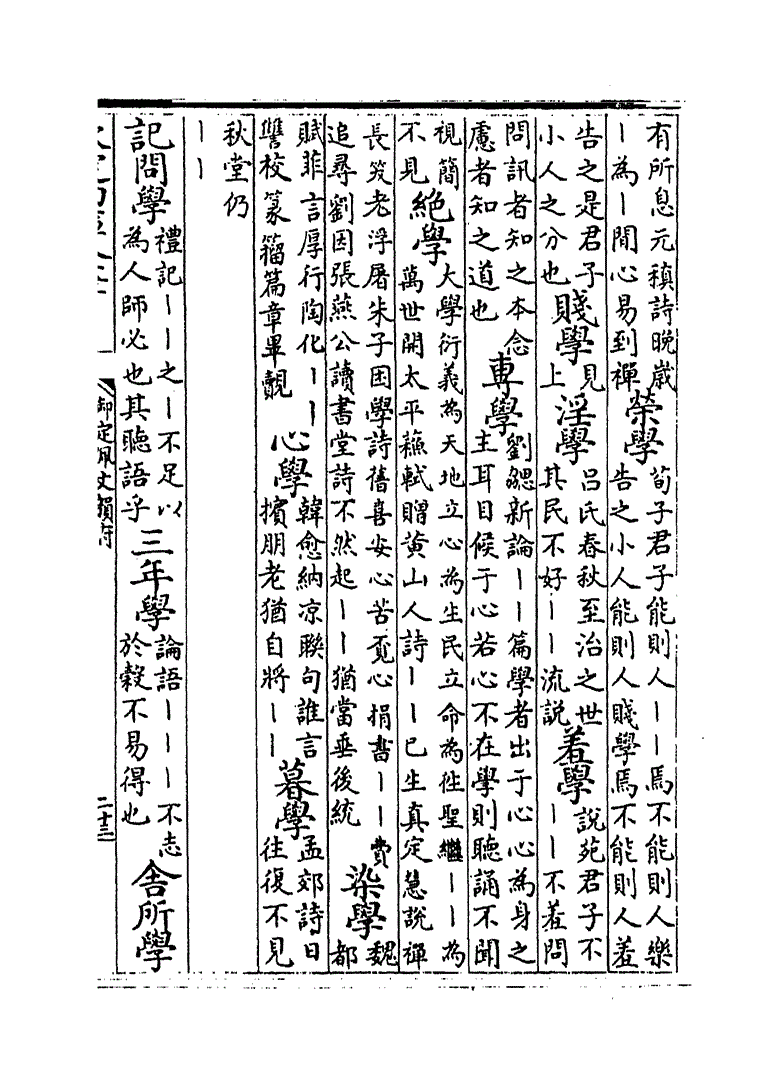 有所息元稹詩晚歲丨為丨閒心易到禪榮學荀子君子能則人丨丨焉不能則人樂告之小人能則人賤學焉不能則人羞
告之是君子小人之分也賤學見上淫學吕氏春秋至治之世其民不好丨丨流説羞學説苑君子不丨丨不羞問
問訊者知之本念慮者知之道也專學劉勰新論丨丨篇學者出于心心為身之主耳目候于心若心不在學則聽誦不聞
視簡不見絶學大學衍義為天地立心為生民立命為徃聖繼丨丨為萬世開太平蘇軾贈黄山人詩丨丨已生真定慧説禪
長笑老浮屠朱子困學詩舊喜安心苦覓心捐書丨丨費追尋劉因張燕公讀書堂詩不然起丨丨猶當垂後統染學魏都
賦菲言厚行陶化丨丨讐校篆籀篇章畢覿心學韓愈納凉聯句誰言擯朋老猶自將丨丨暮學孟郊詩日往復不見
秋堂仍丨丨
記問學禮記丨丨之丨不足以為人師必也其聽語乎三年學論語丨丨丨不志於穀不易得也舍所學
御定佩文韻府
二十三